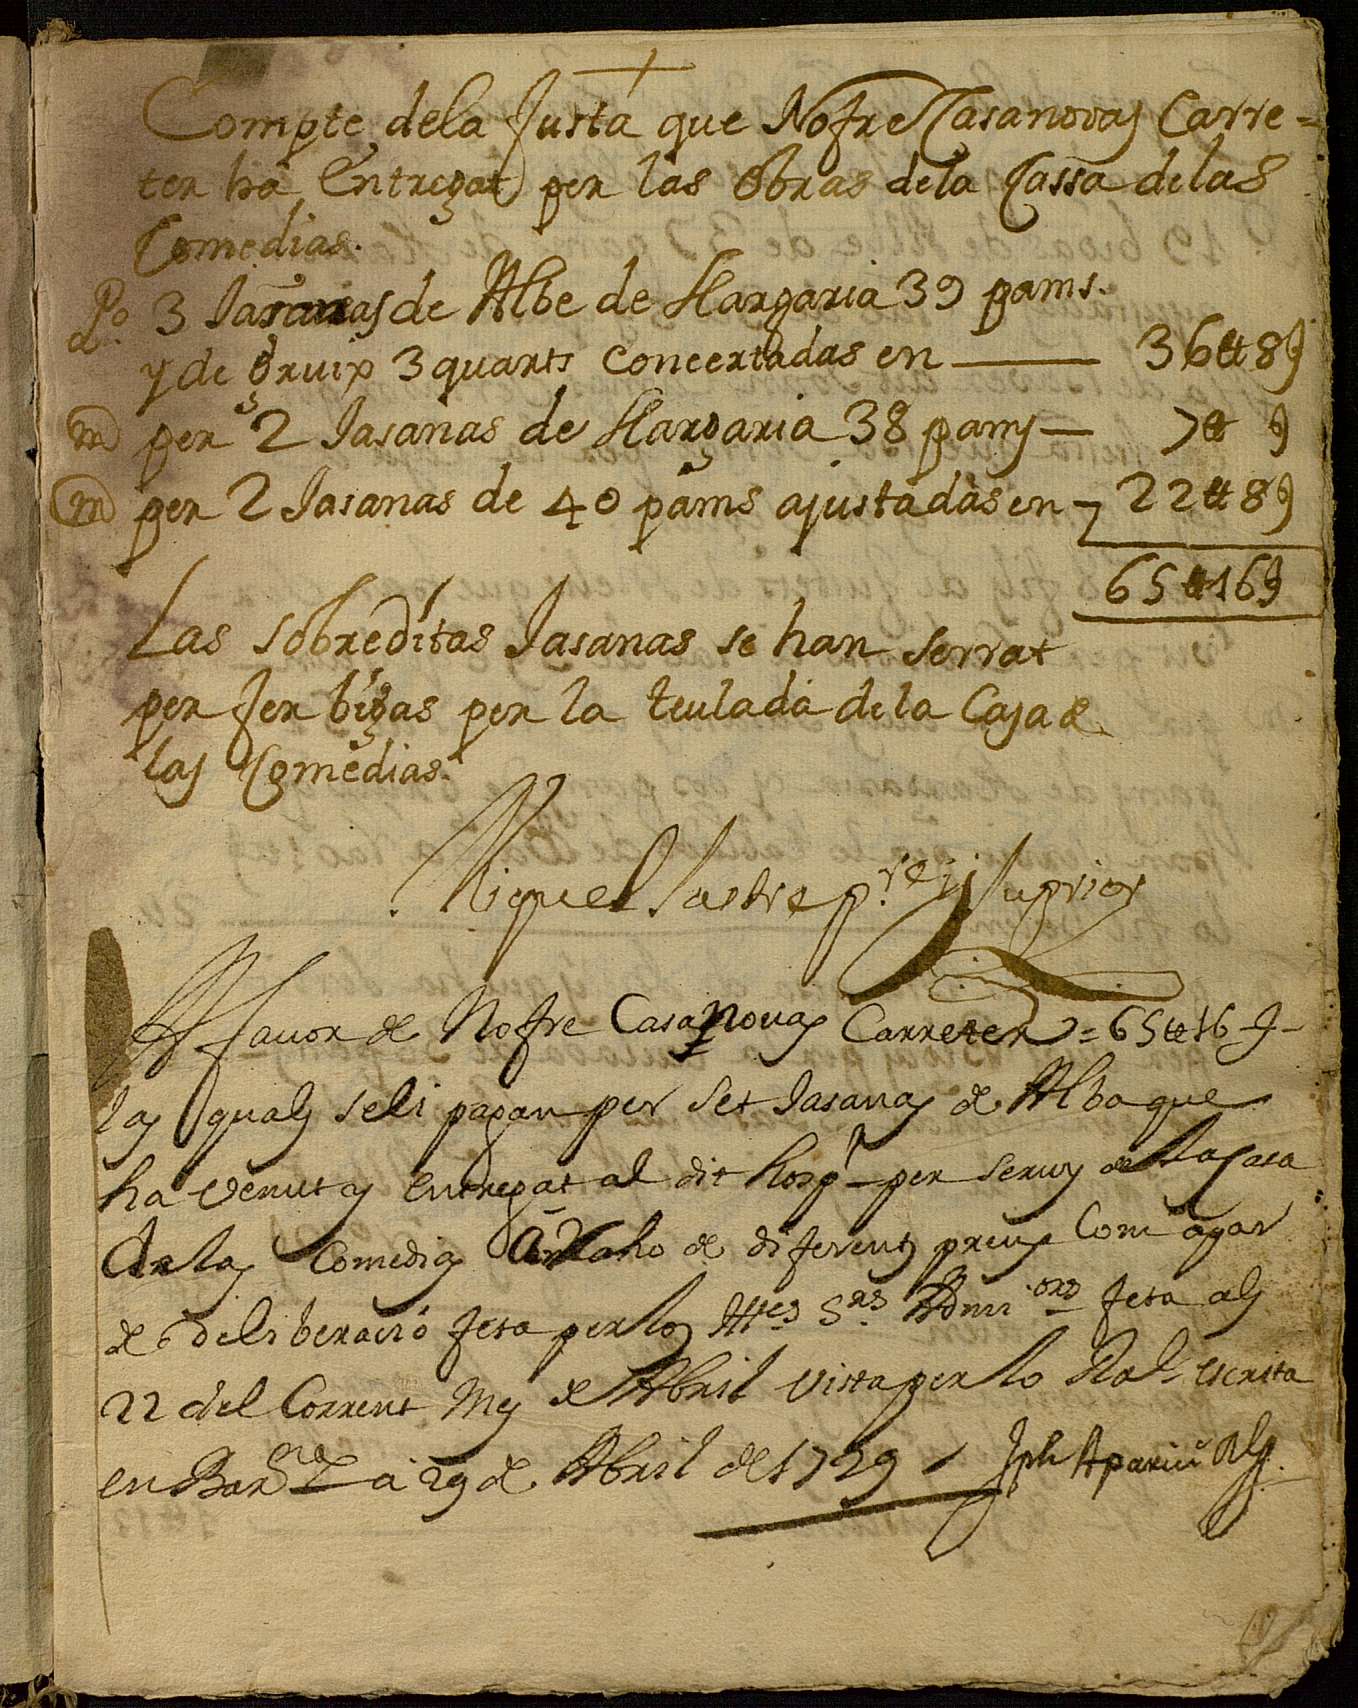 Compte dela fusta que Nofre Casanovas Carre=
ter ha Entregat per las obras dela Cassa delas
Comedias.
Po. 3 Jasanas de Albe de llargaria 39 pams.
y de gruix 3 quarts concertadas en — 36 ₶ 8 ş
m per 2 Jasanas de llargaria 38 pams — 7 ₶ ş
m per 2 Jasanas de 40 pams ajustadas en — 22 ₶ 8 ş
65 ₶ 16 ş
Las sobreditas Jasanas se han serrat
per fer bigas per la teulada dela Casa de
las Comedias.
Miquel Sastre p.re y Suprior
A favor de Nofre Casanovas Carreter = 65 ₶ 16 ş
las quals seli pagan per set Jasanas de Alba que
ha venut y entregat al dit Hosp.l per servey de la Casa
de las Comedias de diferents preus Com apar
de deliberació feta per los Ittes S.rs Admi.ors feta als
22 del Corrent Mes de Abril vista per lo Ral. escrita
en Bar.na a 29 de Abril de 1729
Jph Aparici